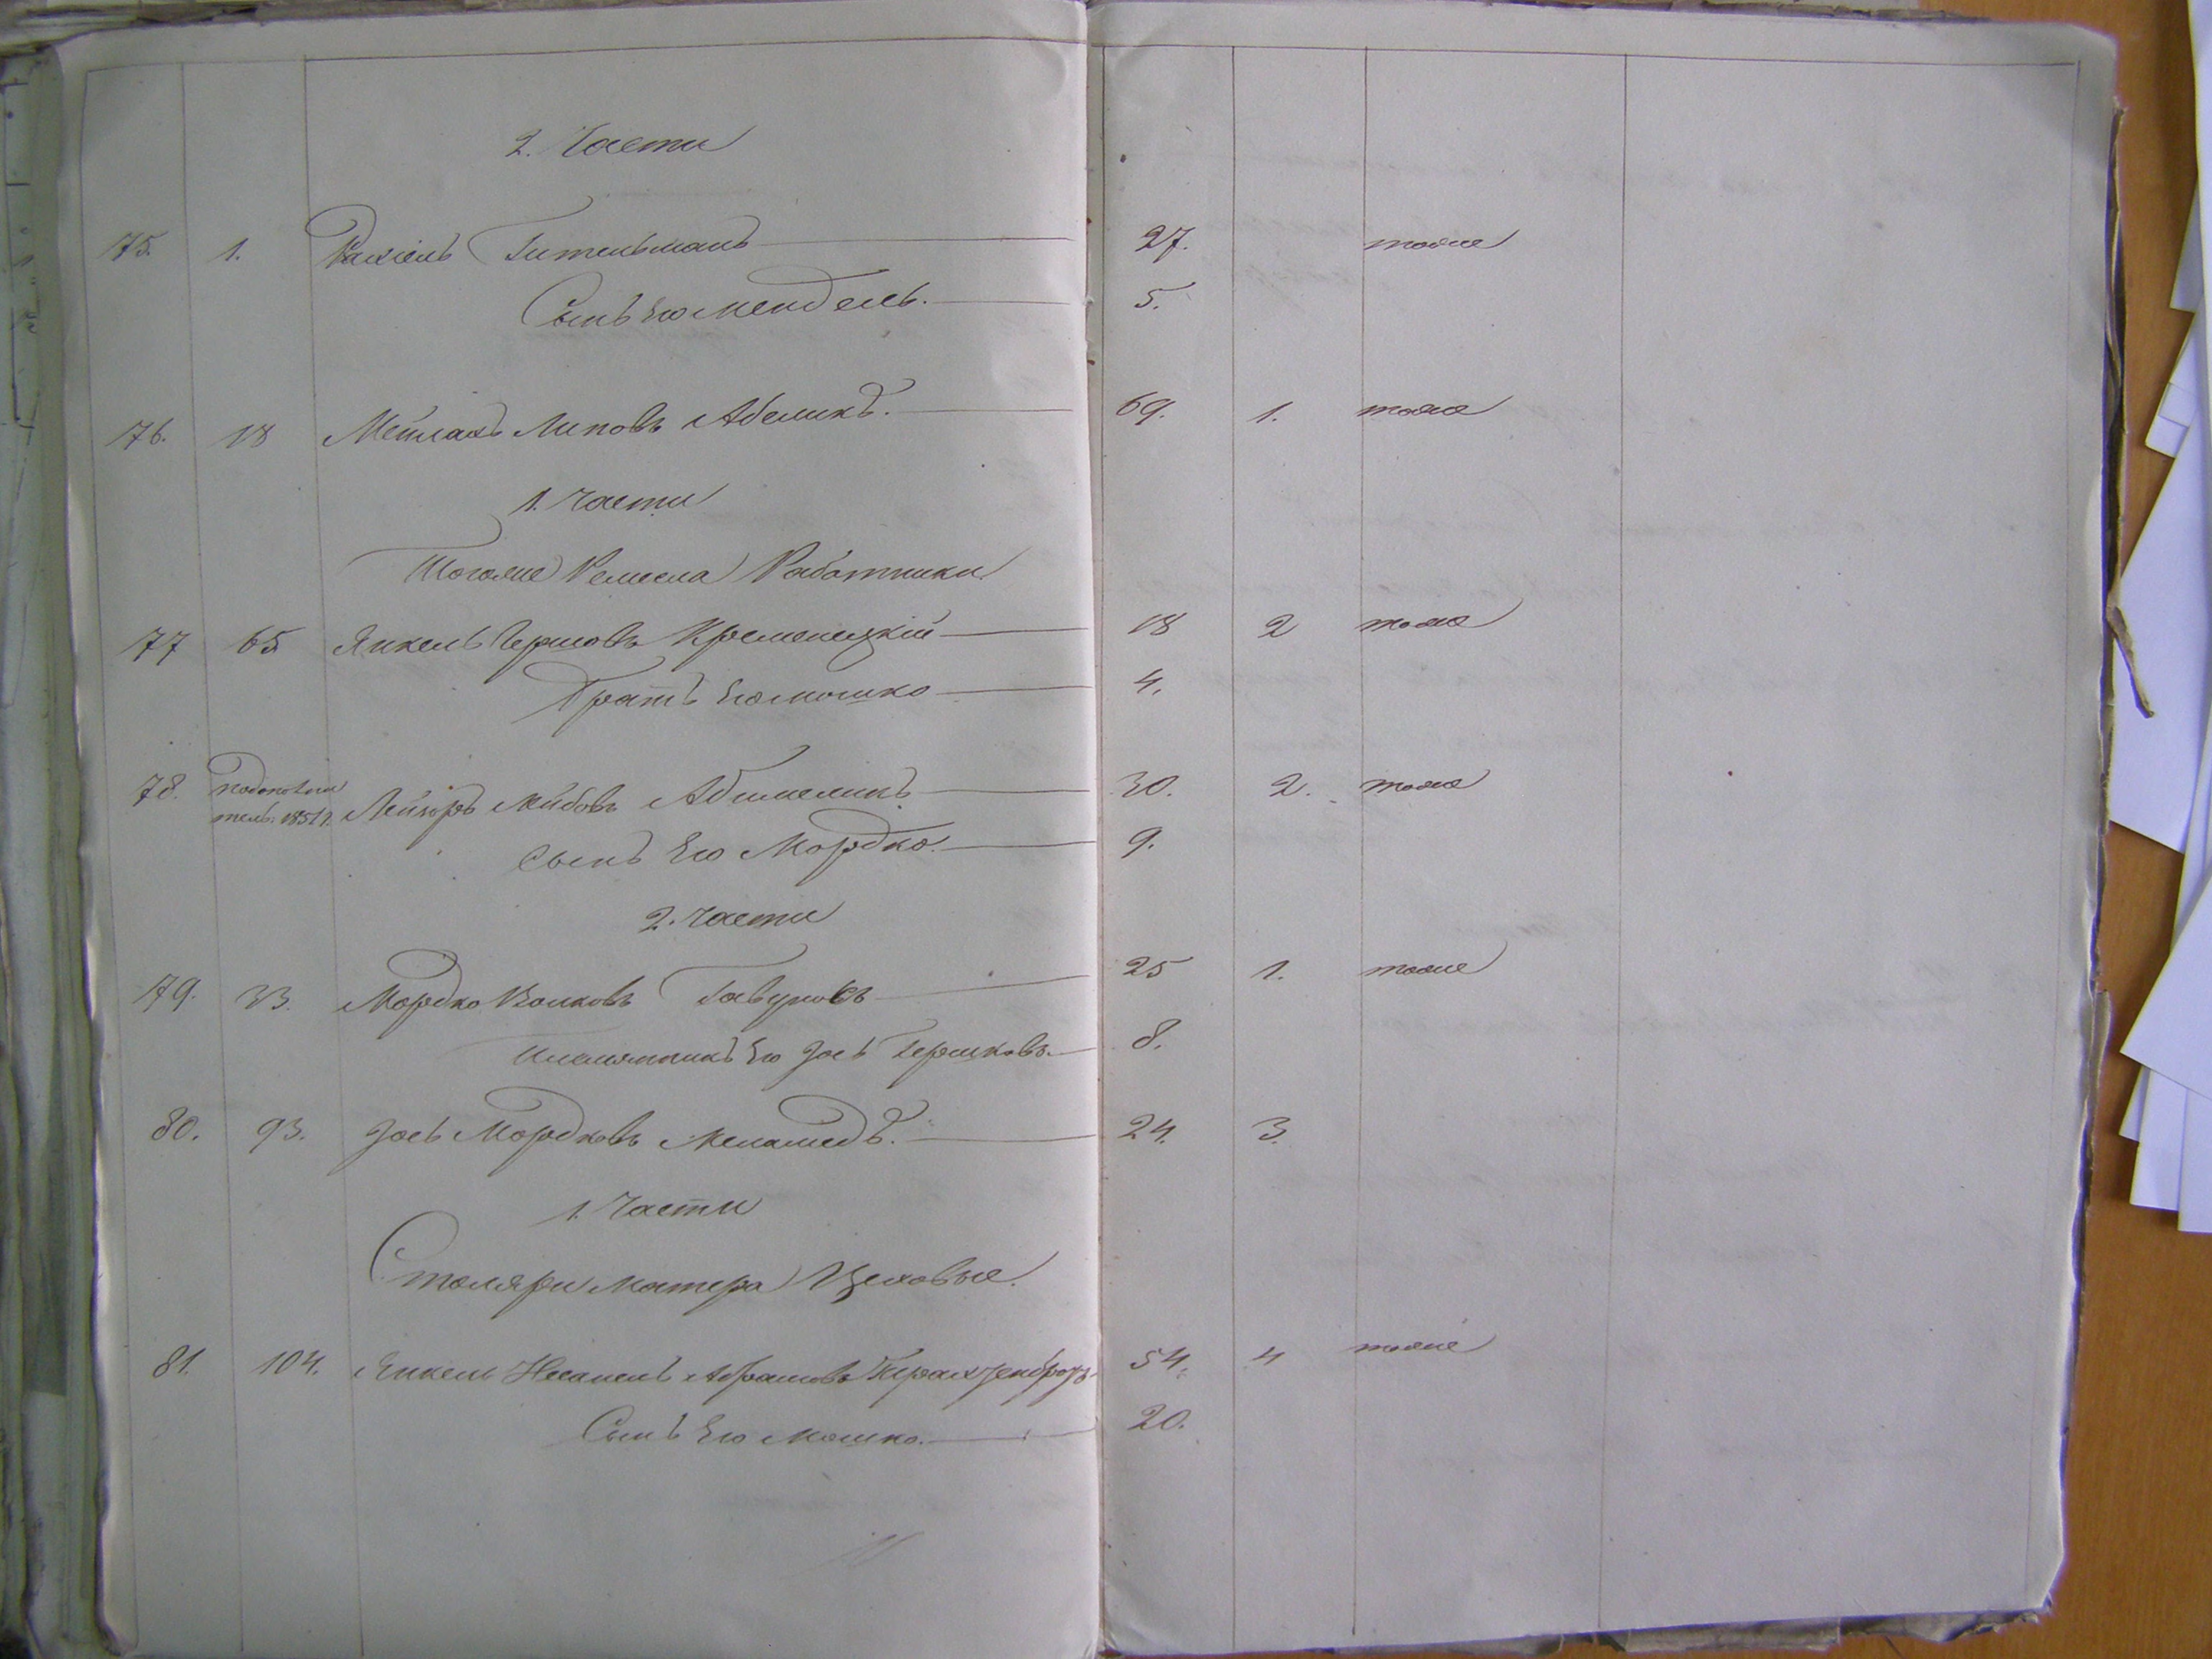 2. Части
75. 1. Рахіель Гительманъ 27. тоже
Сынъ Его Мендель. 5.
76. 18 Мейлахъ Липовъ Абеликъ. 69. 1. тоже
1. Части
Тогоже Ремесла Работники
77 65 Янкель Гершовъ Кременецкій 18 2 тоже
Братъ Его Мошко 4.
78. тель. 1851 г. Лейзоръ Лейбовъ 30. 2. тоже
Сынъ Его Мордко. 9.
2. Части
79. 33. Мордко Волковъ 25 1. тоже
Племянникъ Его Іось Гершковъ. 8.
80. 93. Іось Мордковъ Меламедъ. 24. 3.
1. Части
Столяри мастера Цеховые.
81. 104. Янкель Абрамовъ 54. 4 тоже
Сынъ Его Мошко. 20.